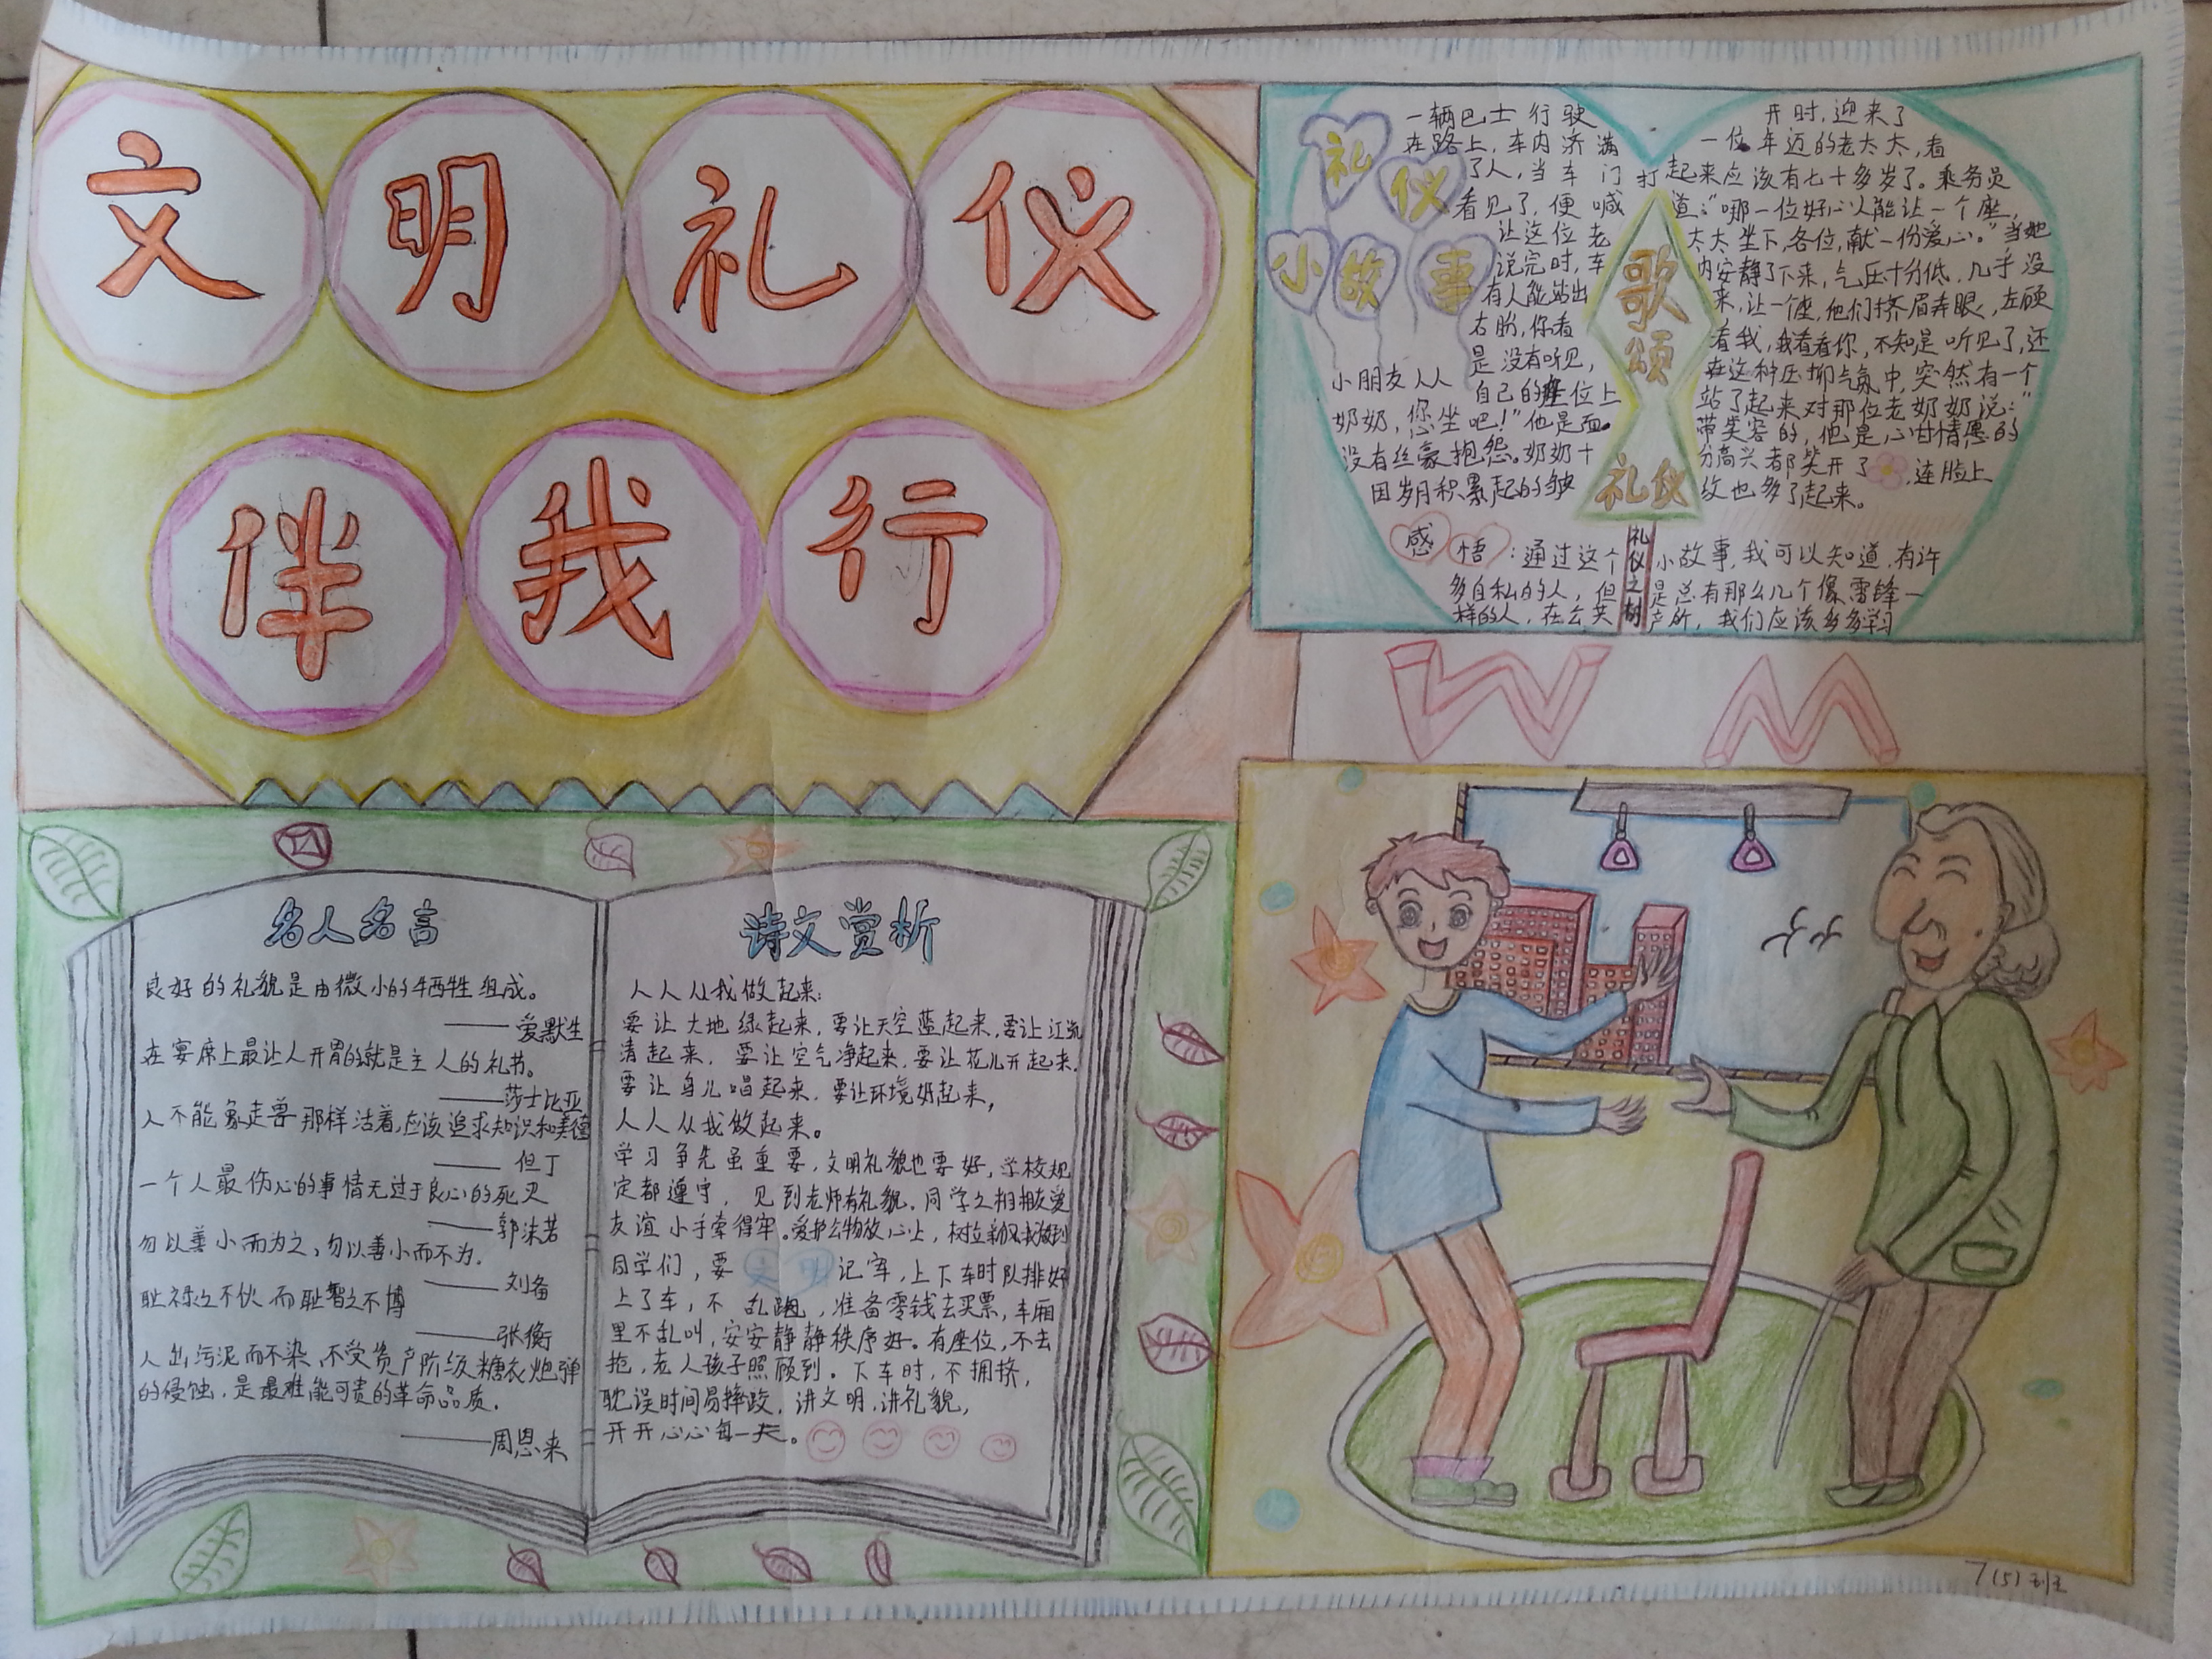 文明礼仪
伴我行
礼仪
小故事
一辆巴士行驶
在路上，车内济满
了人，当车门打
开时，迎来了
一位年迈的老太太，看
起来应该有七十多岁了。乘务员
看见了，便喊
道：“哪一位好心人能让一个座，
让这位老
太太坐下，各位，献一份爱心。”当她
说完时，车
内安静了下来，气压十分低，几乎没
有人能站出
来，让一个座，他们挤眉弄眼，左顾
右盼，你看
看我，我看看你，不知是听见了，还
是没有听见，
在这种压抑气氛中，突然有一个
小朋友从
自己的座位上
站了起来对那位老奶奶说：“
奶奶，您坐吧！”他是面
带笑容的，他是心甘情愿的
没有丝豪抱怨。奶奶十
分高兴都笑开了，连脸上
因岁月积累起的皱
纹也多了起来。
歌颂
礼仪
礼仪之树
感悟：通过这个小故事，我可以知道，有许
多自私的人，但是总有那么几个像雷锋一
样的人，在公共产所，我们应该多多学习
W M
名人名言
良好的礼貌是由微小的牺牲组成。
——爱默生
在宴席上最让人开胃的就是主人的礼节。
——莎士比亚
人不能象走兽那样活着，应该追求知识和美德
——但丁
一个人最伤心的事情无过于良心的死灭
——郭沫若
勿以善小而为之，勿以善小而不为。
——刘备
耻禄之不伙而耻智之不博
——张衡
人出污泥而不染，不受资产阶级糖衣炮弹
的侵蚀，是最难能可贵的革命品质。
——周恩来
诗文赏析
人人从我做起来：
要让大地绿起来，要让天空蓝起来，要让江流
清起来，要让空气净起来，要让花儿开起来，
要让鸟儿唱起来，要让环境好起来，
人人从我做起来。
学习争先虽重要，文明礼貌也要好，学校规
定都遵守，见到老师有礼貌，同学之间相友爱
友谊小手牵得牢。爱护公物放心上，树立新风我做到
同学们，要文明记牢，上下车时队排好
上了车，不乱跑，准备零钱去买票，车厢
里不乱叫，安安静静秩序好。有座位，不去
抢，老人孩子照顾到。下车时，不拥挤，
耽误时间易摔跤，讲文明，讲礼貌，
开开心心每一天。
7(5)班